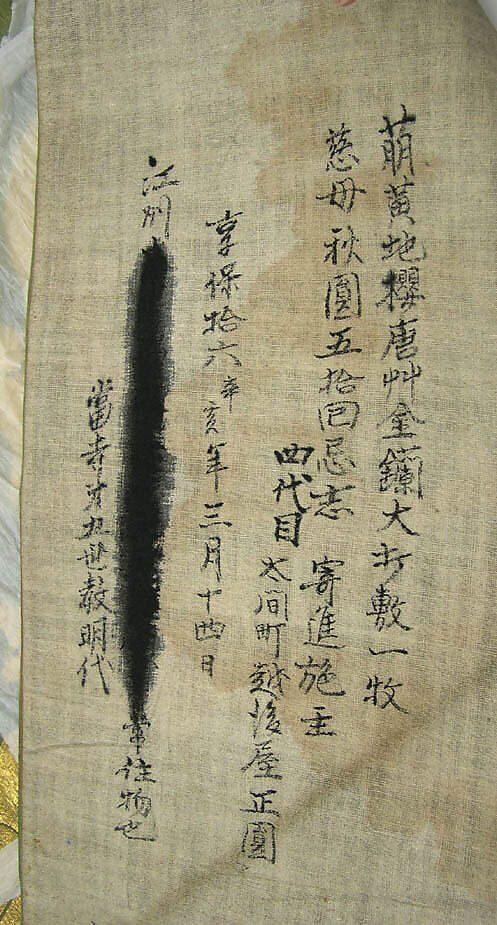 萠黄地櫻唐艸金襴大打敷一牧
慈母秋圓五拾回忌志 寄進施主
四代目 太间町越後屋正圓
享保拾六辛亥年三月十四日
江州
常住物也
當寺才五世教明代